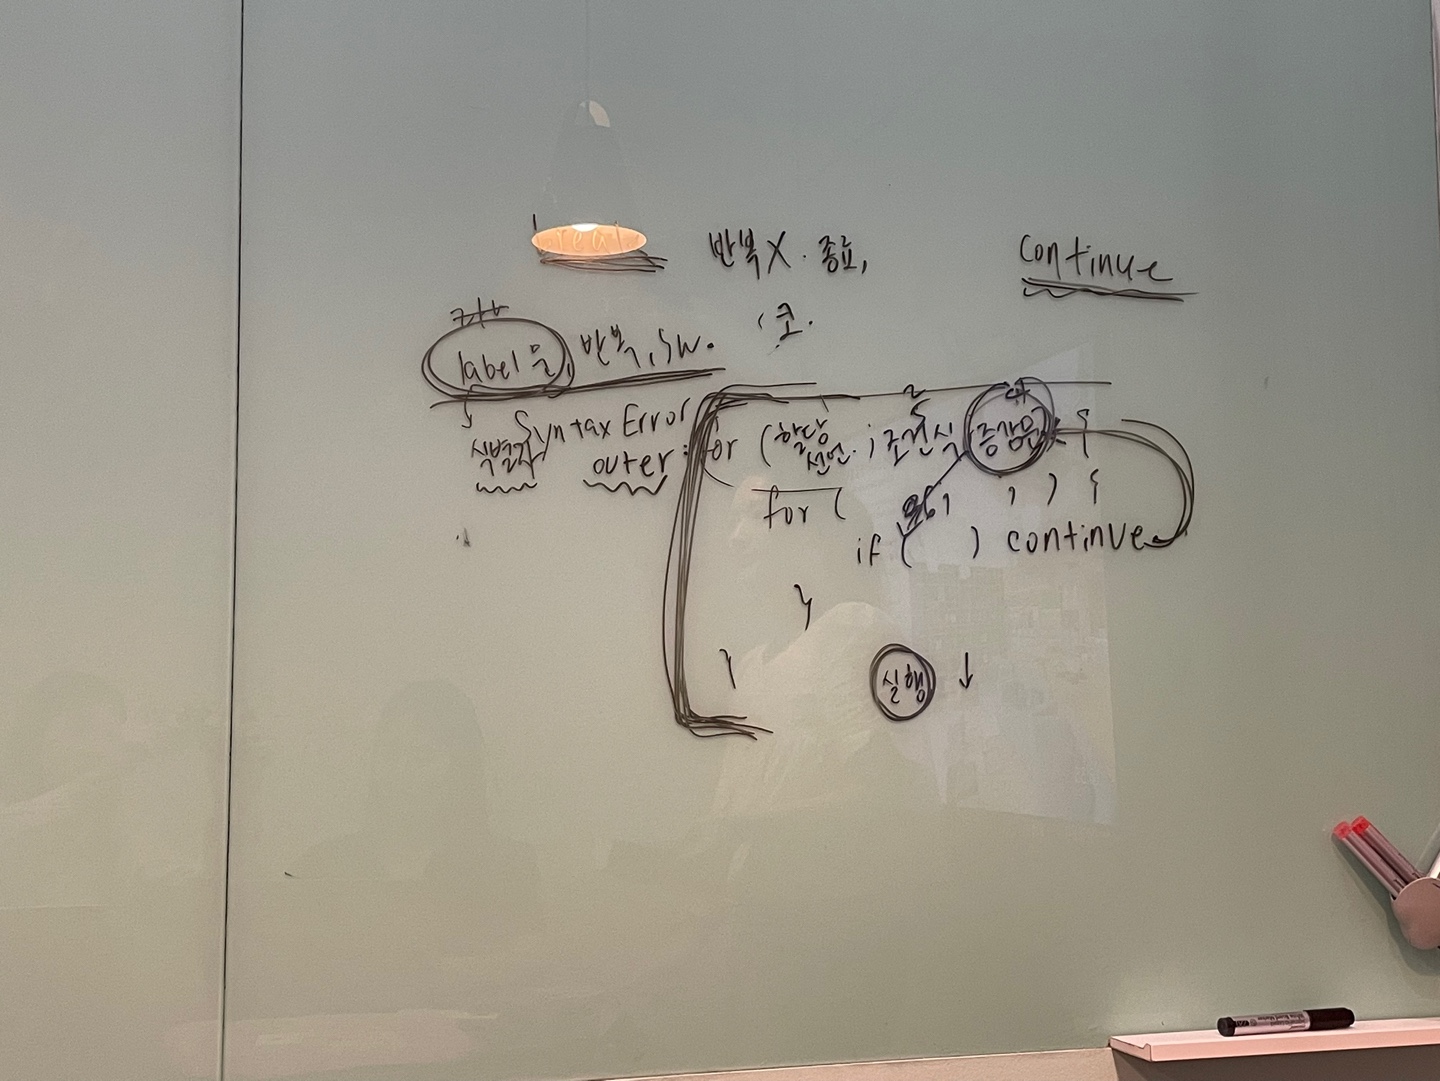 break 반복X. 종료, continue
label문, 반복, sw.
Syntax Error
식별자 outer : for (할당 선언 ; 조건식 증감문) {
for ( ; ) {
if ( ) continue
}
}
실행 ↓